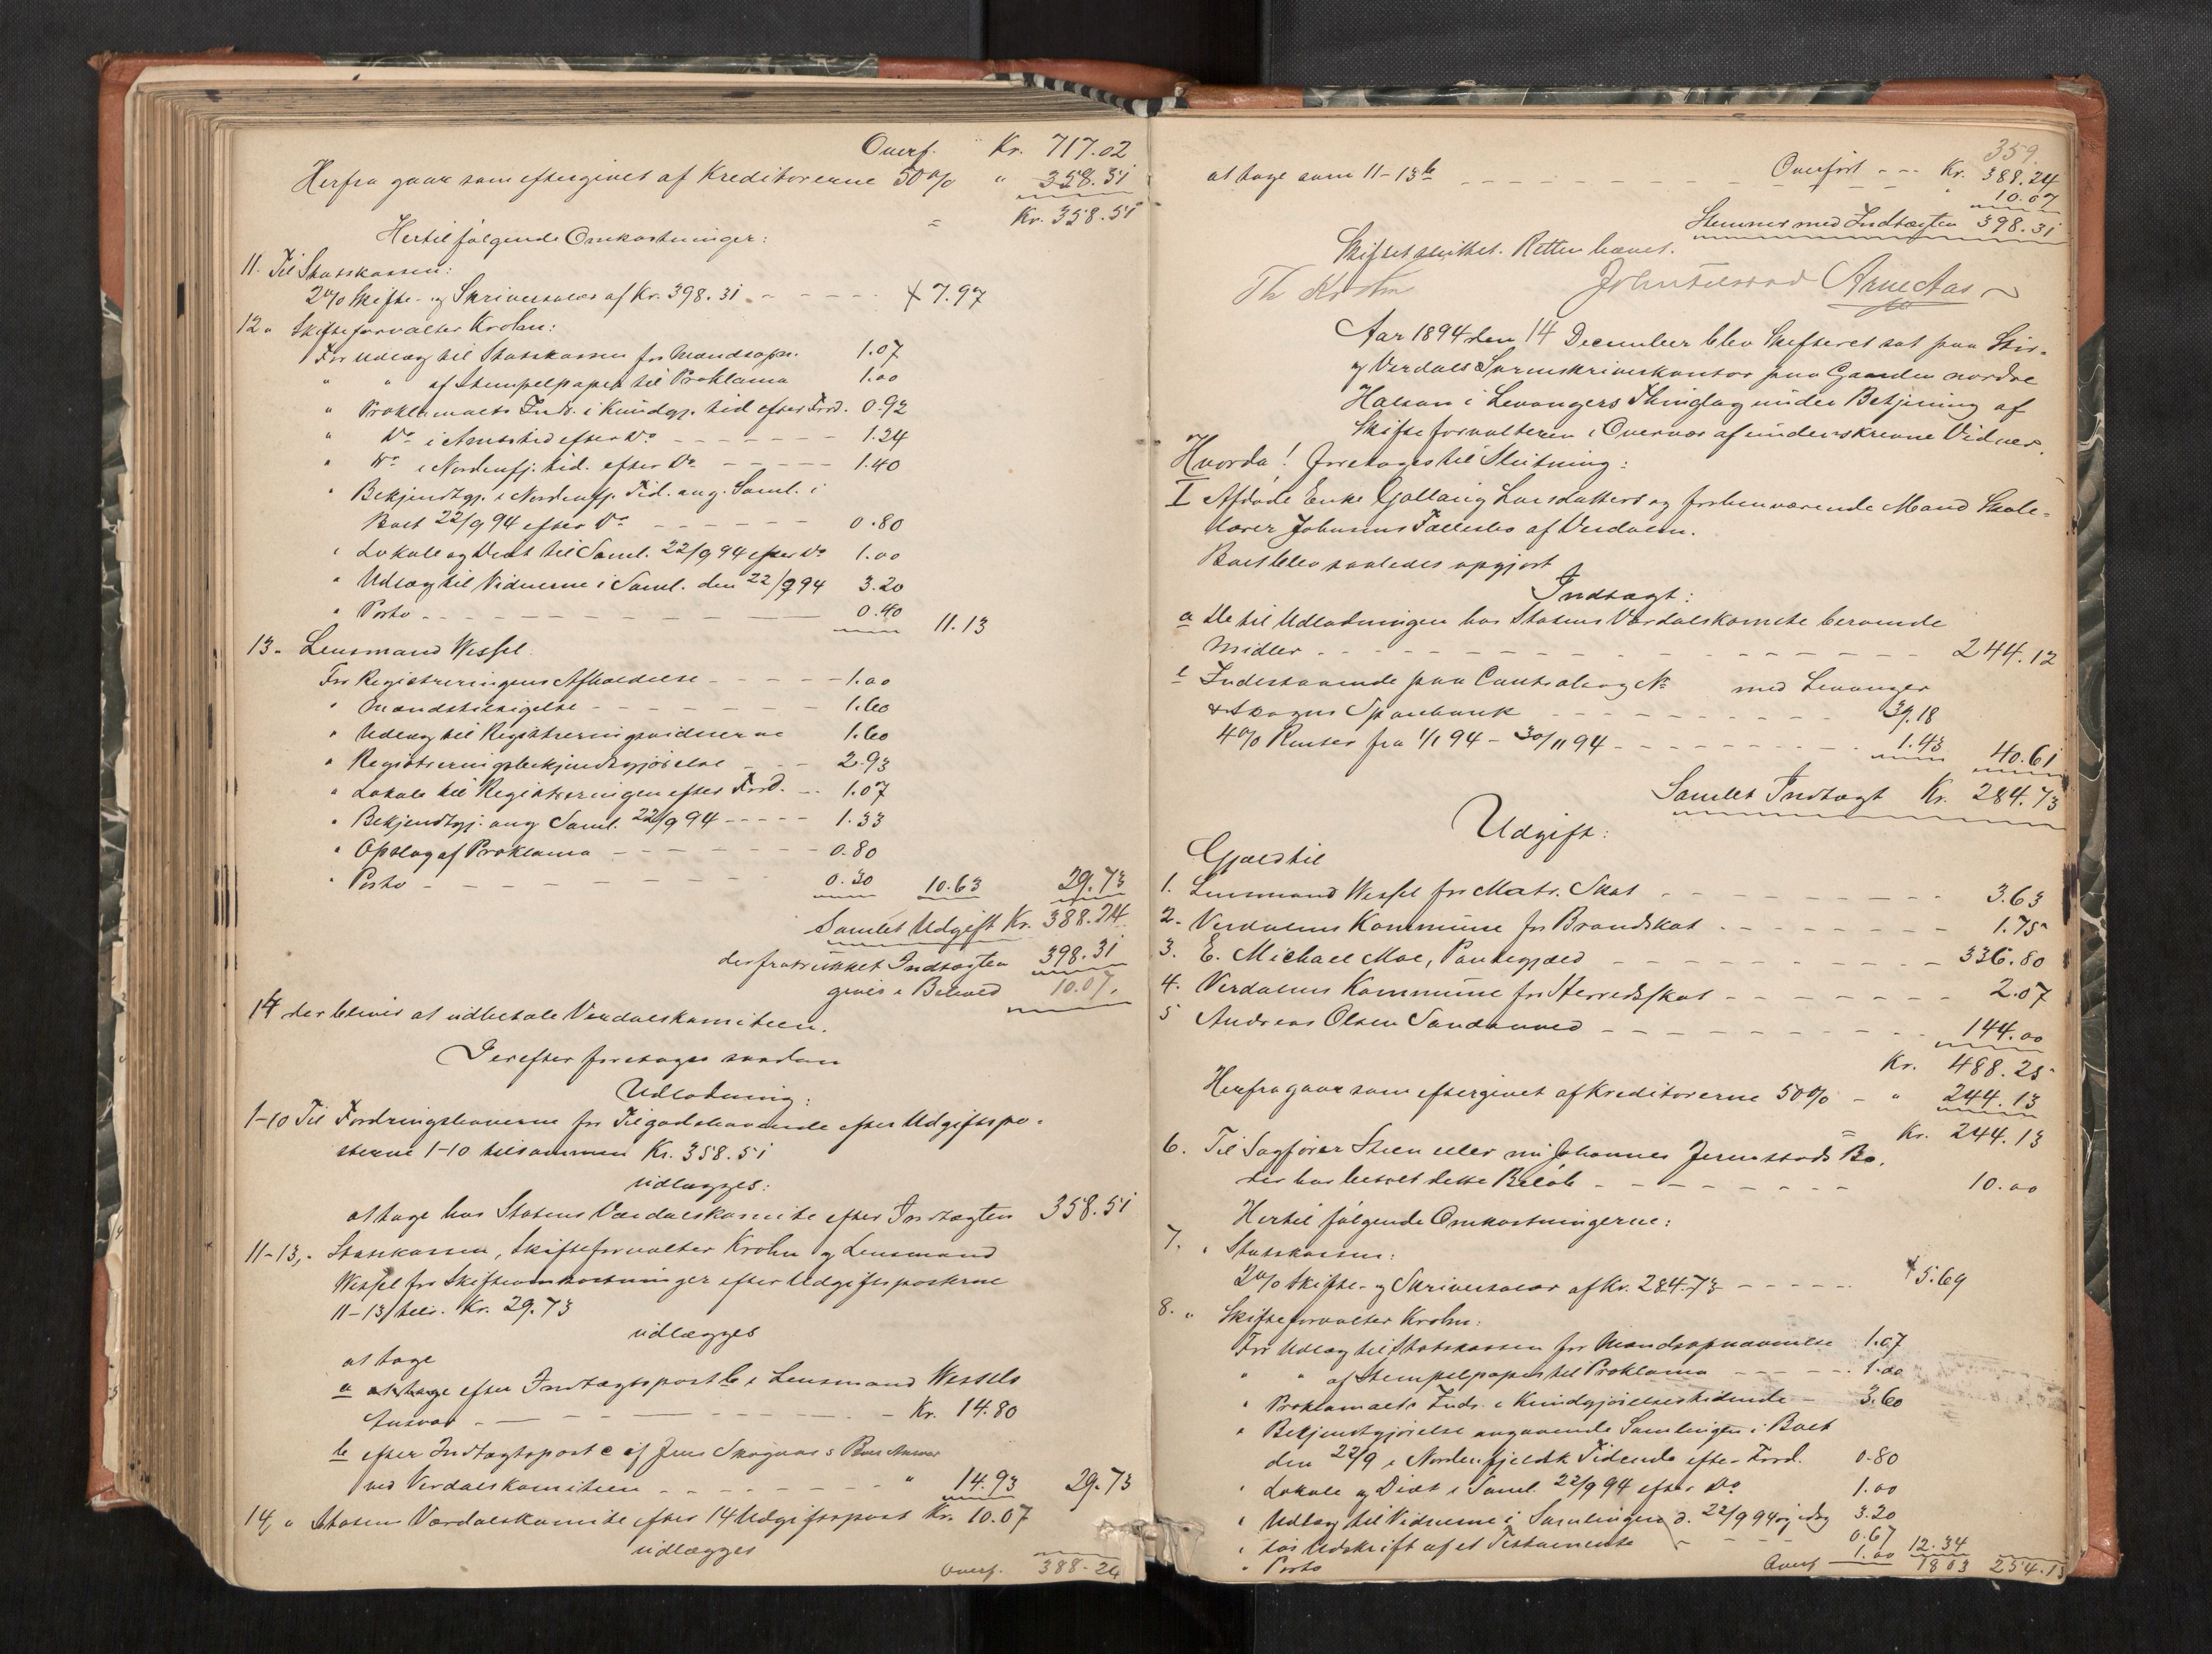 Overf. Kr. 717.02
Herfra gaar som eftergivet af Kreditorerne 50% " 358.51
= Kr. 358.51
Hertil følgende Omkostninger:
11. Til Statskassen:
2% Skifte- og Skriversalær af Kr. 398.31 - - - - - 7.97
12 " Skifteforvalter Krohn:
For Udlæg til Statskassen for Mandsopn. 1.07
" " af Stempelpapir til Proklama 1.00
" Proklamaets Indr. i Kundgj. tid efter Ford. 0.92
" Do i Amtstid efter Do - - - - - - - 1.24
" Do i Nordenfj. tid. efter Do - - - - - 1.40
" Bekjendtgj. i Nordenfj. Tid. ang. Saml. i
Boet 22/9 94 efter Do - - - - - - 0.80
" Lokale og Diæt til Saml. 22/9 94 efter Do 1.00
" Udlæg til Vidnerne i Saml. den 22/9 94 3.20
" Porto - - - - - - - - 0.40 11.13
13 " Lensmand Wessel
For Registreringens Afholdelse - - - - - 1.00
" Mandstilsigelse - - - - - - - 1.60
" Udlæg til Registreringsvidnerne 1.60
" Registreringsbekjendtgjørelse - - - 2.93
" Lokale til Registreringen efter Ford. - - 1.07
" Bekjendtgj. ang. Saml. 22/9 94 - - - - - 1.33
" Opslag af Proklama - - - - - - - 0.80
" Porto - - - - - - - - 0.30 10.63 29.73
Samlet Udgift Kr. 388.24
der fratrukket Indtægten 398.31
giver i Behold 10.07.
14 der bliver at udbetale Verdalskomiteen.
Derefter foretages saadan
Udlodning:
1-10 Til Fordringshaverne for Tilgodehavende efter Udgiftspo-
sterne 1-10 tilsammen Kr. 358.51
udlægges:
at tage hos Statens Værdalskomite efter Indtægten 358.51
11-13, " Statskassen, Skifteforvalter Krohn og Lensmand
Wessel for Skifteomkostninger efter Udgiftsposterne
11-13 tils. Kr. 29.73
udlægges
at tage
a at tage efter Indtægtspost b i Lensmand Wessels
Ansvar - - - - - - - - - Kr. 14.80
b efter Indtægtspost c af Jens Skognas's Boes Ansvar
ved Verdalskomiteen - - - - - - - " 14.93 29.73
14, " Statens Værdalskomite efter 14 Udgiftspost Kr. 10.07
udlægges
Overf. 388.24
359.
Overført - - - Kr. 388.24
at tage som 11-13 b - - - - - - - - - - 10.07
Stemmer med Indtægten 398.31
Skiftet sluttet. Retten hævet.
Th Krohn Arne Aas
Aar 1894 den 14 December blev Skifteret sat paa Stør-
og Verdals Sorenskriverkontor paa Gaarden nordre
Halsan i Levangers Thinglag under Betjening af
Skifteforvalteren i Overvær af underskrevne Vidner.
Hvorda! foretages til Slutning:
I Afdøde Enke Larsdatters og forhenværende Mand Skole-
lærer Johannes af Verdalen.
Boet blev saaledes opgjort
Indtægt:
a De til Udlodningen hos Statens Værdalskomite beroende
Midler - - - - - - - - - - - - - 244.12
b Indestaaende paa Contrabog No med Levanger
& Skogns Sparebank - - - - - - - - - - 39.18
4% Renter fra 1/1 94 - 30/11 94 - - - - - - - - 1.43 40.61
Samlet Indtægt Kr. 284.73
Udgift:
Gjæld til
1. Lensmand Wessel for Matr. Skat - - - - - - - - - 3.63
2. Verdalens Kommune for Brandskat - - - - - - - - 1.75
3. E. Michael Moe, Pantegjæld - - - - - - - - - - 336.80
4. Verdalens Kommune for Herredsskat - - - - - - - - 2.07
5 Andreas Olsen - - - - - - - - - 144.00
Kr. 488.25
Herfra gaar som eftergivet af Kreditorerne 50% - " 244.13
= Kr. 244.13
6. Til Sagfører Steen eller nu Johannes Jermstads Bo,
der har betalt dette Beløb - - - - - - - - - 10.00
Hertil følgende Omkostningerne:
7. " Statskassen:
2% Skifte- og Skriversalær af Kr. 284.73 - - - - - 5.69
8. " Skifteforvalter Krohn:
For Udlæg til Statskassen for Mandsopnævnelse 1.07
" " af Stempelpapir til Proklama - - - - - 1.00
" Proklamaets Indr. i Kundgjørelsestidende - 3.60
" Bekjendtgjørelse angaaende Samlingen i Boet
den 22/9 i Nordenfjeldsk Tidende efter Ford. 0.80
" Lokale og Diæt i Saml. 22/9 94 efter Do 1.00
" Udlæg til Vidnerne i Samlingen d. 22/9 94 og idag 3.20
" for Udskrift af et Testamente - - - - 0.67 12.34
" Porto 1.00
Overf. 18 03 254.13